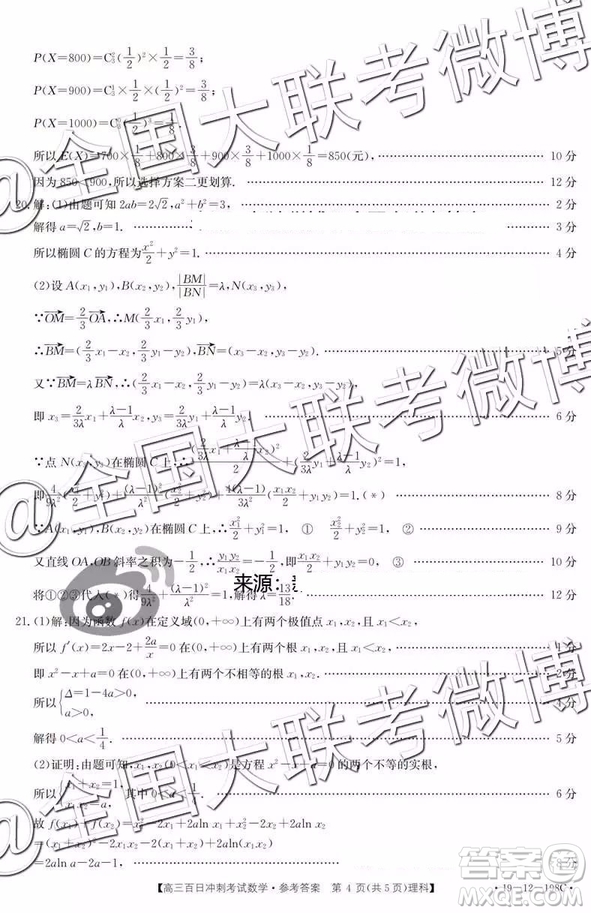 P(X=800)=C₃²(1/2)²×1/2=3/8;
P(X=900)=C₃¹×1/2×(1/2)²=3/8;
P(X=1000)= (1/2)³=1/8.
所以E(X)=700×1/8+800×3/8+900×3/8+1000×1/8=850(元), 10分
因为850<900,所以选择方案二更划算. 12分
20.解:(1)由题可知2ab=2√2,a²+b²=3, 2分
解得a=√2,b=1. 3分
所以椭圆C的方程为x²/2+y²=1. 4分
(2)设A(x₁,y₁),B(x₂,y₂),|BM|/|BN|=λ,N(x₃,y₃),
∵OM=2/3 OA,∴M(2/3 x₁,2/3 y₁),
∴BM=(2/3 x₁-x₂,2/3 y₁-y₂),BN=(x₃-x₂,y₃-y₂). 5分
又∵BM=λBN,∴2/3 x₁-x₂=λ(x₃-x₂),2/3 y₁-y₂=λ(y₃-y₂),
即x₃=2/3λ x₁+λ-1/λ x₂,y₃=2/3λ y₁+λ-1/λ y₂. 6分
∵点N(x₃,y₃)在椭圆C上,∴(2/3λ x₁+λ-1/λ x₂)²/2+(2/3λ y₁+λ-1/λ y₂)²=1,
即4/9λ²(x₁²/2+y₁²)+(λ-1)²/λ²(x₂²/2+y₂²)+ (x₁x₂/2+y₁y₂)=1.(*) 8分
∵A(x₁,y₁),B(x₂,y₂)在椭圆C上,∴x₁²/2+y₁²=1, ① x₂²/2+y₂²=1, ② 9分
又直线OA,OB斜率之积为-1/2,∴y₁y₂/x₁x₂=-1/2,即x₁x₂/2+y₁y₂=0, ③ 10分
将①②③代入(*)得4/9λ²+(λ-1)²/λ²=1,解得λ=13/18. 12分
来源:
21.(1)解:因为函数f(x)在定义域(0,+∞)上有两个极值点x₁,x₂,且x₁<x₂,
所以f′(x)=2x-2+2a/x在(0,+∞)上有两个根x₁,x₂,且x₁<x₂, 1分
即x²-x+a=0在(0,+∞)上有两个不相等的根x₁,x₂. 2分
所以{Δ=1-4a>0,
a>0,
解得0<a<1/4. 5分
(2)证明:由题可知,x₁,x₂(0<x₁<x₂)是方程x²-x+a=0的两个不等的实根,
所以{x₁+x₂=1, 其中0<a<1/4. 6分
故f(x₁)+f(x₂)=x₁²-2x₁+2aln x₁+x₂²-2x₂+2aln x₂
=(x₁+x₂)²-2x₁x₂-2(x₁+x₂)+2aln(x₁x₂)
=2aln a-2a-1, 8分
【高三百日冲刺考试数学·参考答案 第4页(共5页)理科】
·19-12-198C·
@全国大联考微博
@全国大联考微博
@全国大联考微博
答案圈